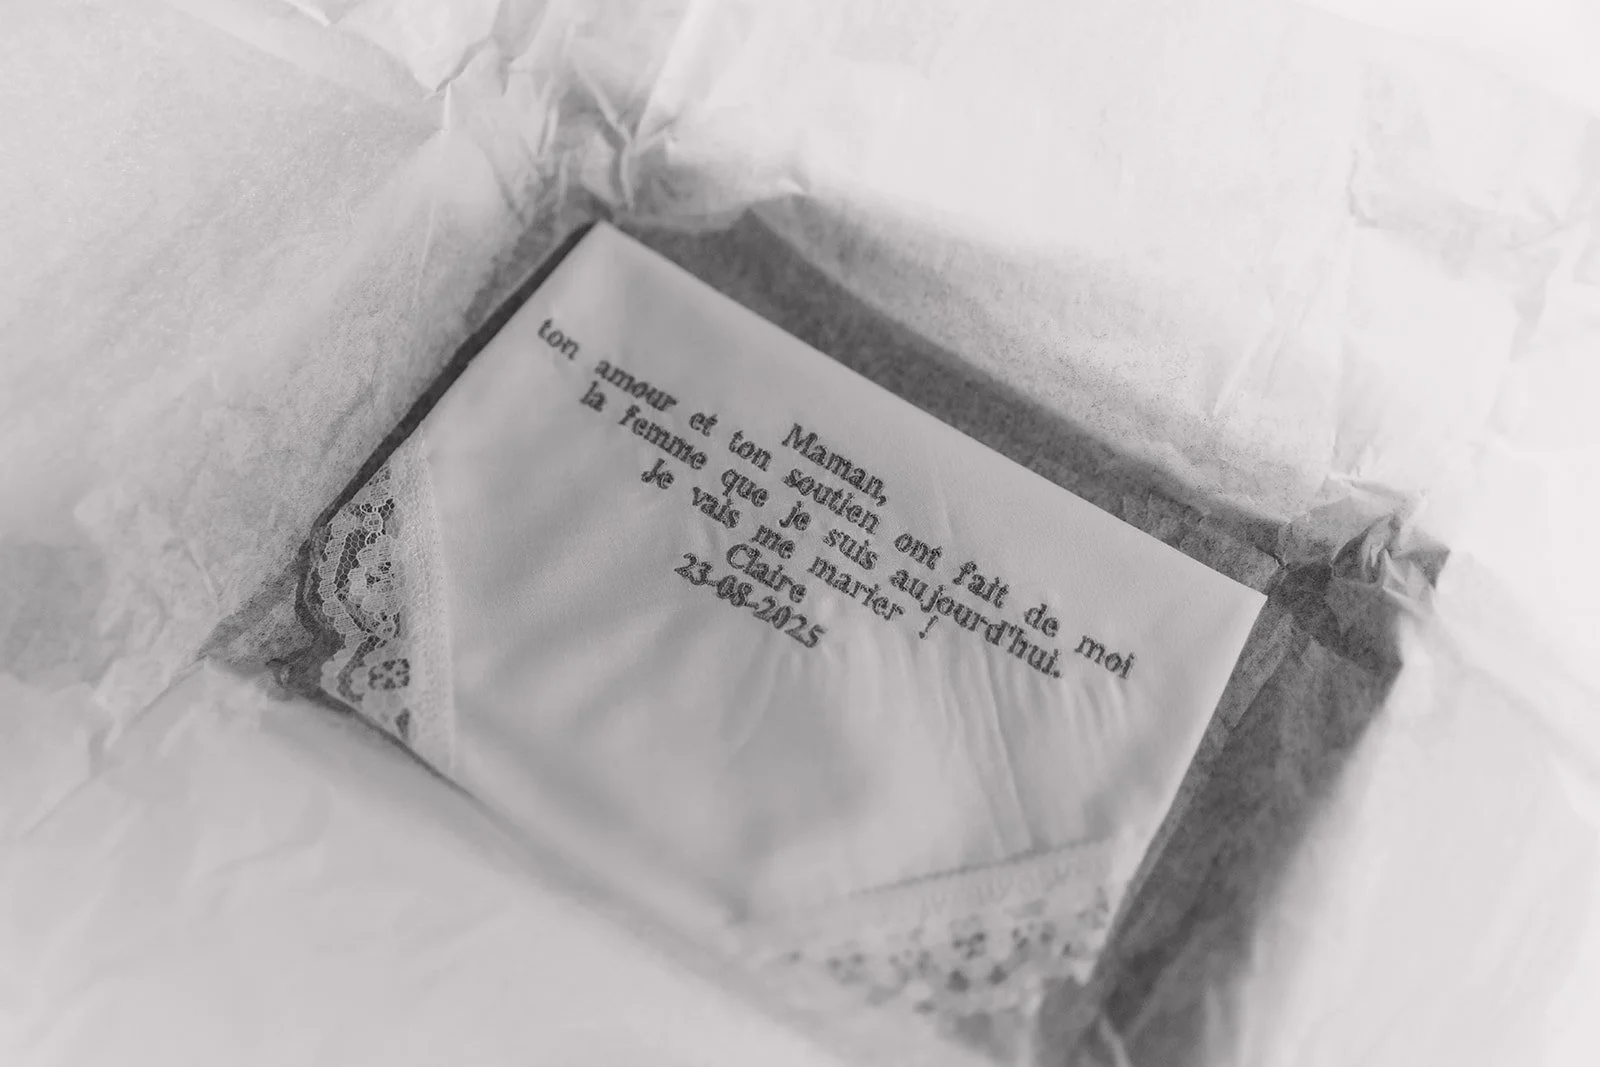 Maman,
ton amour et ton soutien ont fait de moi
la femme que je suis aujourd'hui.
Je vais me marier !
Claire
23-08-2025